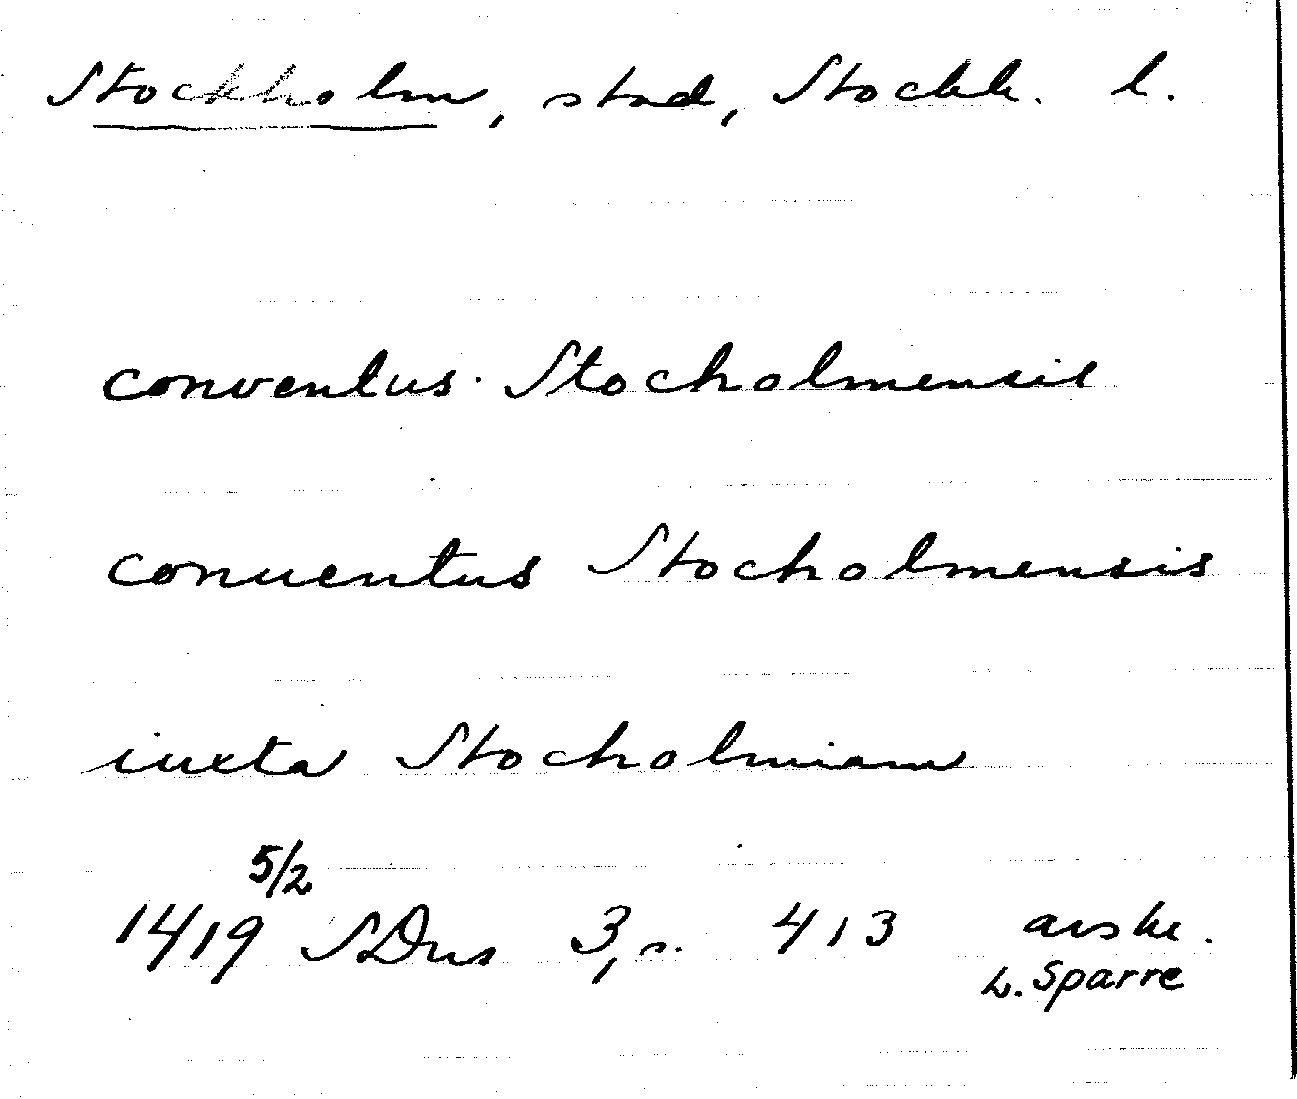 Stockholm, stad, Stockh. l.
conventus Stocholmensis
conuentus Stocholmensis
iuxta Stocholmiam
5/2
1419 SDns 3, s. 413 avskr.
L. Sparre